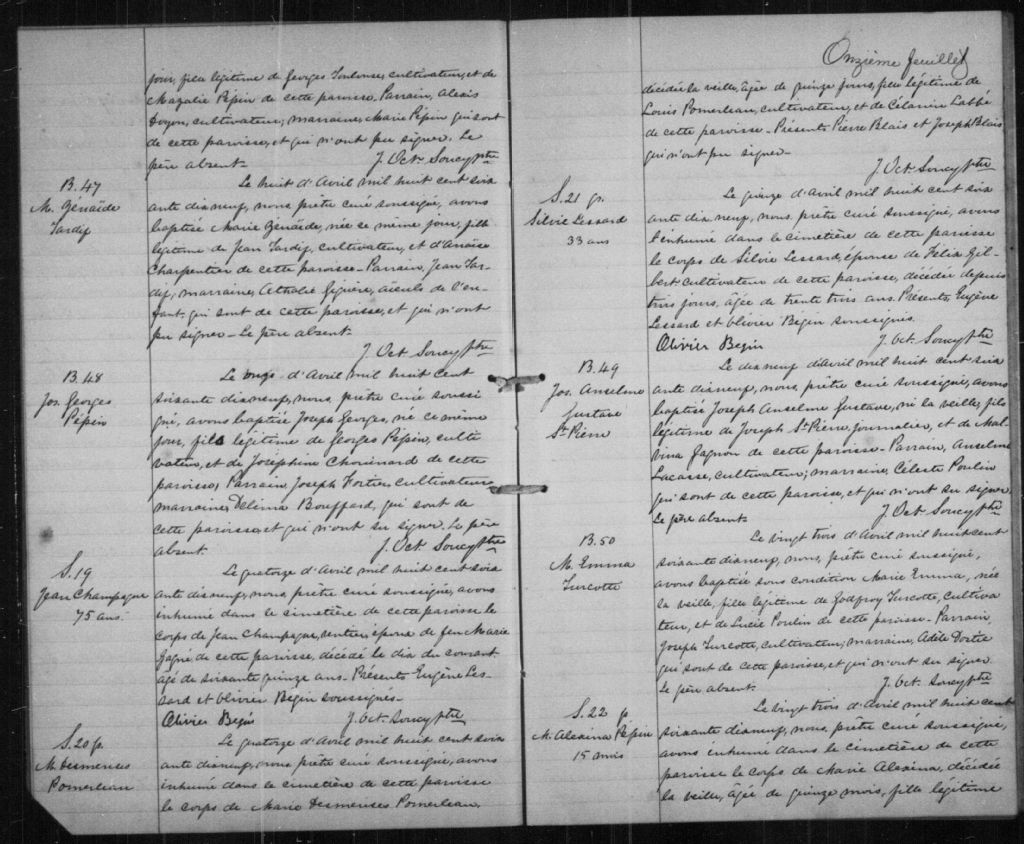 jour, fille légitime de Georges Toulouse, cultivateur, et de
Mazalie Pépin de cette paroisse. Parrain, Alexis
Doyon, cultivateur; marraine, Marie Pépin qui sont
de cette paroisse, et qui n'ont pu signer. Le
père absent. J. Oct. Soucy ptre
B. 47
M. Zénaïde
Tardif
Le huit d'Avril mil huit cent soix
ante dix neuf, nous, prêtre curé soussigné, avons
baptisé Marie Zénaïde, née ce même jour, fille
légitime de Jean Tardif, cultivateur, et d'Anaïse
Charpentier de cette paroisse - Parrain, Jean Tar-
dif; marraine, Athalie Giguère, aïeuls de l'en-
fant, qui sont de cette paroisse, et qui n'ont
pu signer - Le père absent.
J. Oct Soucy ptre
B. 48
Jos. Georges
Pépin
Le onze d'Avril mil huit cent
soixante dix neuf, nous, prêtre curé soussi
gné, avons baptisé Joseph Georges, né ce même
jour, fils légitime de Georges Pépin, culti
vateur, et de Joséphine Chouinard de cette
paroisse, Parrain, Joseph Fortier, cultivateur
marraine, Délima Bouffard, qui sont de
cette paroisse, et qui n'ont su signer. Le père
absent. J. Oct Soucy ptre
S. 19
Jean Champagne
75 ans.
Le quatorze d'Avril mil huit cent soix
ante dix neuf, nous, prêtre curé soussigné, avons
inhumé dans le cimetière de cette paroisse le
corps de Jean Champagne, rentier, époux de feu Marie
Gagné de cette paroisse, décédé le dix du courant
agé de soixante quinze ans. Présents Eugène Les-
sard et Olivier Begin soussignés -
Olivier Begin J. Oct. Soucy ptre
S. 20 p.
M. Desmerises
Pomerleau
Le quatorze d'Avril mil huit cent soix
ante dix neuf, nous prêtre curé soussigné, avons
inhumé dans le cimetière de cette paroisse
le corps de Marie Desmerises Pomerleau,
Onzième feuillet
décédée la veille, âgée de quinze jours, fille légitime de
Louis Pomerleau, cultivateur, et de Célanire Labbé
de cette paroisse - Présents Pierre Blais et Joseph Blais
qui n'ont pu signer -
J. Oct Soucy ptre
S. 21 p.
Silvie Lessard
33 ans
Le quinze d'Avril mil huit cent soix
ante dix neuf, nous prêtre curé soussigné, avons
inhumé dans le cimetière de cette paroisse
le corps de Silvie Lessard, épouse de Félix Gil-
bert cultivateur de cette paroisse, décédée depuis
trois jours, âgée de trente trois ans. Présents, Eugène
Lessard et Olivier Bégin soussignés.
Olivier Begin J. Oct. Soucy ptre
B. 49
Jos. Anselme
Gustave
St. Pierre
Le dix neuf d'Avril mil huit cent soix
ante dix neuf, nous, prêtre curé soussigné, avons
baptisé Joseph Anselme Gustave, né la veille, fils
légitime de Joseph St. Pierre, journalier, et de Mal
vina Gagnon de cette paroisse - Parrain, Anselme
Lacasse, cultivateur; marraine, Céleste Poulin
qui sont de cette paroisse, et qui n'ont su signer.
Le père absent. J. Oct Soucy ptre
B. 50
M. Emma
Turcotte
Le vingt trois d'Avril mil huit cent
soixante dix neuf, nous, prêtre curé soussigné,
avons baptisé sous condition Marie Emma, née
la veille, fille légitime de Godfroy Turcotte, cultiva
teur, et de Lucie Poulin de cette paroisse - Parrain,
Joseph Turcotte, cultivateur; marraine, Adèle Dostie
qui sont de cette paroisse, et qui n'ont su signer.
Le père absent. J. Oct. Soucy ptre
S. 22 p.
M. Alexina Pépin
15 mois
Le vingt trois d'Avril mil huit cent
soixante dix neuf, nous, prêtre curé soussigné,
avons inhumé dans le cimetière de cette
paroisse le corps de Marie Alexina, décédée
la veille, âgée de quinze mois, fille légitime